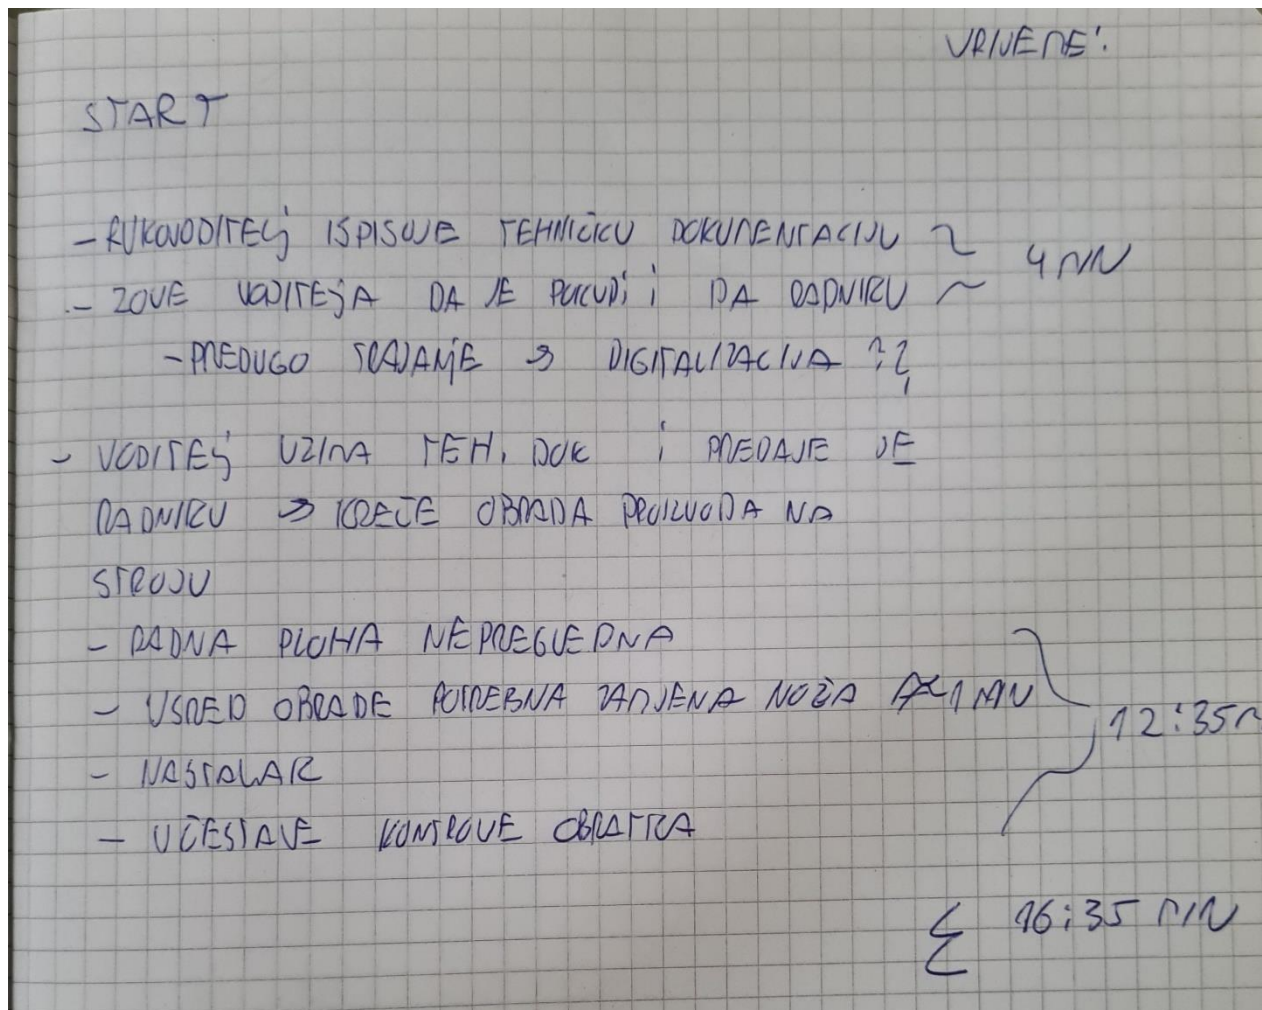 VRIJEME:
START
- RUKOVODITELJ ISPISUJE TEHNIČKU DOKUMENTACIJU
- ZOVE VODITELJA DA JE POKUPI I DA RADNIKU 4 MIN
- PREDUGO TRAJANJE → DIGITALIZACIJA ??
- VODITELJ UZIMA TEH. DOK I PREDAJE JE
RADNIKU → KREĆE OBRADA PROIZVODA NA
STROJU
- RADNA PLOHA NEPREGLEDNA
- USRED OBRADE POTREBNA ZAMJENA NOŽA 1 MIN
12:35
- NASTALAK
- UČESTALE KONTROLE OBRATKA
Σ 16:35 MIN